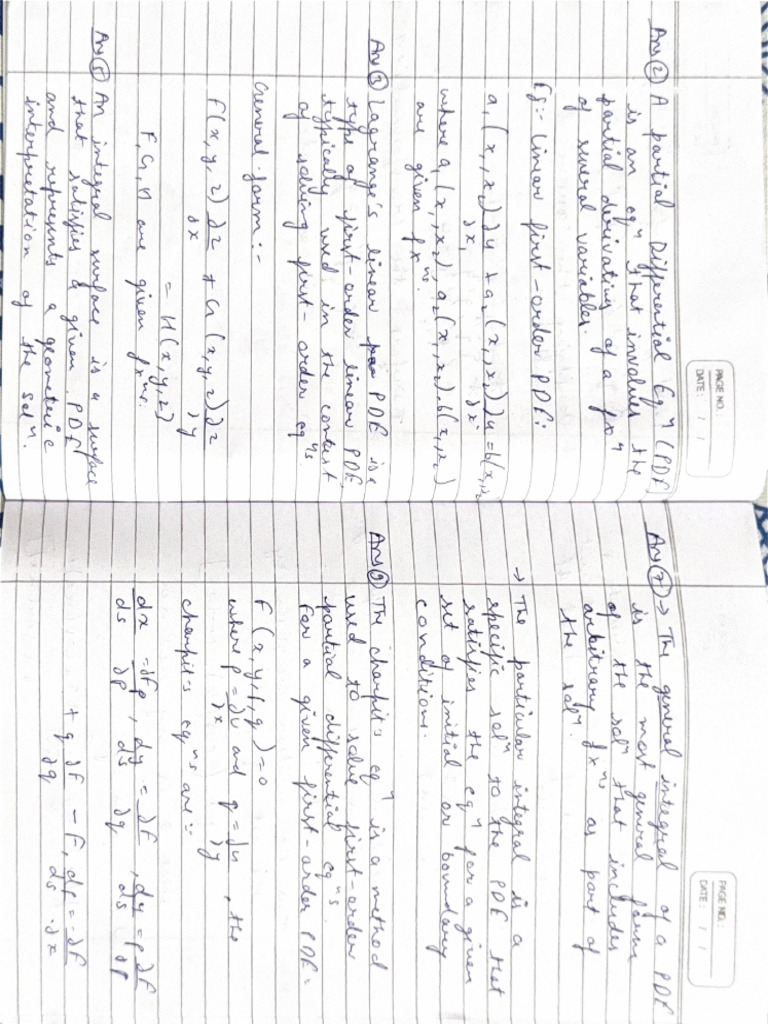 PAGE NO.:
DATE: / /
Ans ② A partial Differential Eqⁿ (PDE)
is an eqⁿ that involves the
partial derivating of a fxⁿ
of several variables.
Eg:- linear first-order PDE:
a₁(x₁,x₂)∂u/∂x₁ + a₂(x₁,x₂)∂u/∂x² = b(x₁,x₂)
where a₁(x₁,x₂), a₂(x₁,x₂), b(x₁,x₂)
are given fxⁿˢ.
Ans ③ Lagrange's linear PDE is a
type of first-order linear PDE,
typically used in the context
of solving first-order eqⁿˢ
General form:-
F(x,y,z)∂z/∂x + G(x,y,z)∂z/∂y
= H(x,y,z)
F, G, H are given fxⁿˢ.
Ans ⑤ An integral surface is a surface
that satisfies a given PDE
and represents a geometric
interpretation of the solⁿ.
PAGE NO.:
DATE: / /
Ans ⑦ → The general integral of a PDE
is the most general form
of the solⁿ that includes
arbitrary fxⁿˢ as part of
the solⁿ.
→ The particular integral is a
specific solⁿ to the PDE that
satisfies the eqⁿ for a given
set of initial or boundary
conditions.
Ans ⑨ The charpit's eqⁿ is a method
used to solve first-order
partial differential eqⁿˢ
for a given first-order PDE:
F(x,y,p,q)=0
where p = ∂u/∂x and q = ∂u/∂y, the
charpit's eqⁿˢ are:-
dx/ds = ∂F/∂p, dy/ds = ∂F/∂q, du/ds = p ∂F/∂p
+ q ∂F/∂q - F, dp/ds = -∂F/∂x